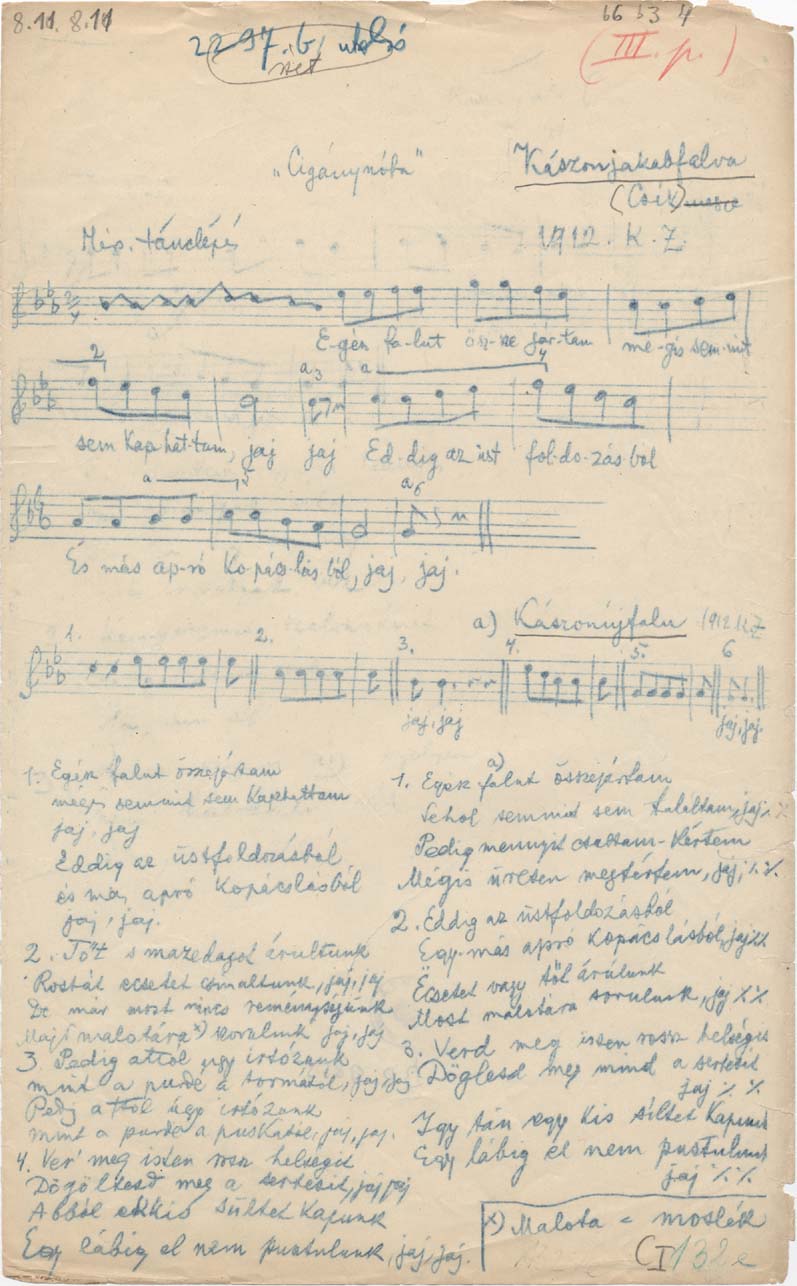 8.11. 8.11
66 63 4
2297. b, utolsó
(III. p.)
„Cigánynóta"
Kászonjakabfalva
(Csík)
Mérs. tánclépés
1912. K. Z.
E-gész fa-lut ösz-sze jár-tam me-gis sem-mit
2
a 3
a 4
sem kap-hat-tam, jaj jaj Ed-dig az üst fol-do-zás-ból
a 5
a 6
És más ap-ró Ko-pács-lás-ból, jaj, jaj.
a) Kászonújfalu 1912 K Z
1. 2. 3. 4. 5. 6
jaj, jaj jaj, jaj.
1. Egész falut összejártam
mégis semmit sem Kaphattam
jaj, jaj
Eddig az üstfoldozásból
és más apró Kopácslásból
jaj, jaj.
2. Tőt s mazedagot árultunk
Rostát ecsetet csináltunk, jaj, jaj
De már most nincs reménységünk
Majd malotára x) szorulunk jaj, jaj
3. Pedig attól úgy irtózunk
mint a purdé a tormától, jaj, jaj
Pedig attól úgy irtózunk
mint a purdé a puskától, jaj, jaj.
4. Ver' meg isten rossz helségit
Dögöltesd meg a sertésit, jaj jaj
Abból sültet kapunk
Egy lábig el nem pustulunk, jaj, jaj.
a)
1. Egész falut összejártam
Sehol semmit sem találtam, jaj % %
Pedig mennyit csaltam-kértem
Mégis üresen megtértem, jaj, % %.
2. Eddig az üstfoldozásból
Egy-más apró Kopácslásból, jaj % %
Ecsetet vagy tőt árulunk
Most malotára sorulunk, jaj % %
3. Verd meg isten rossz helségit
Dögleszd meg mind a sertésit
jaj % %
Igy tán egy kis sültet kapunk
Egy lábig el nem pustulunk
jaj % %
x) Malota = moslék
C I 132 e